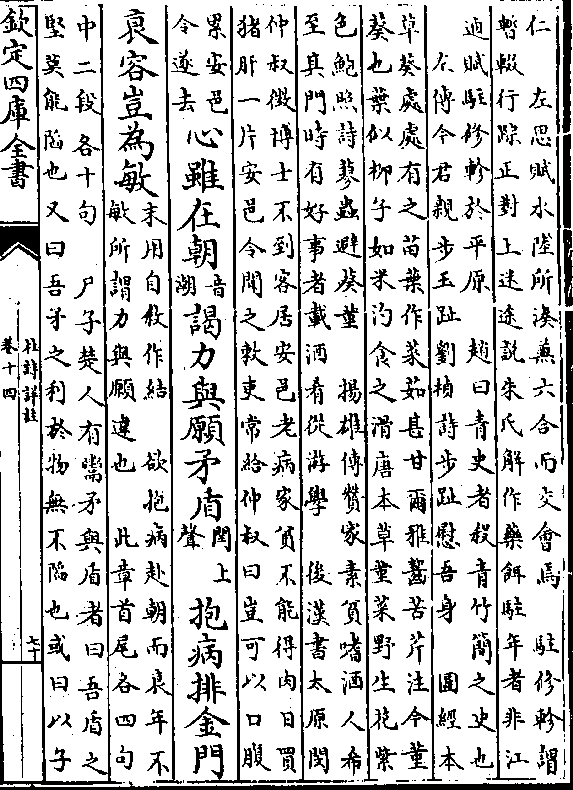 仁　左思賦水陸所湊兼六合而交會焉　駐修軫謂
暫輟行踪正對上迷途説朱氏解作藥餌駐年者非江
逈賦駐修軫於平原　趙曰青史者殺青竹簡之史也
左傳今君親步玉趾劉楨詩步趾慰吾身　圖經本
草葵處處有之苗葉作菜茹甚甘爾雅齧苦芹注今菫
葵也葉似柳子如米汋食之滑唐本草菫菜野生花紫
色鮑照詩蓼蟲避葵菫　揚雄傳贊家素貧嗜酒人希
至其門時有好事者載酒肴從游學　後漢書太原閔
仲叔徵博士不到客居安邑老病家貧不能得肉日買
猪肝一片安邑令聞之敕吏常給仲叔曰豈可以口腹
累安邑
令遂去
心雖在朝音潮謁力與願矛盾閏上聲　抱病排金門
衰容豈為敏
末用自叙作結　欲抱病赴朝而衰年不
敏所謂力與願違也　此章首尾各四句
中二段各十句　尸子楚人有鬻矛與盾者曰吾盾之
堅莫能陷也又曰吾矛之利於物無不陷也或曰以子
欽定四庫全書
杜詩詳註
卷十四
七十